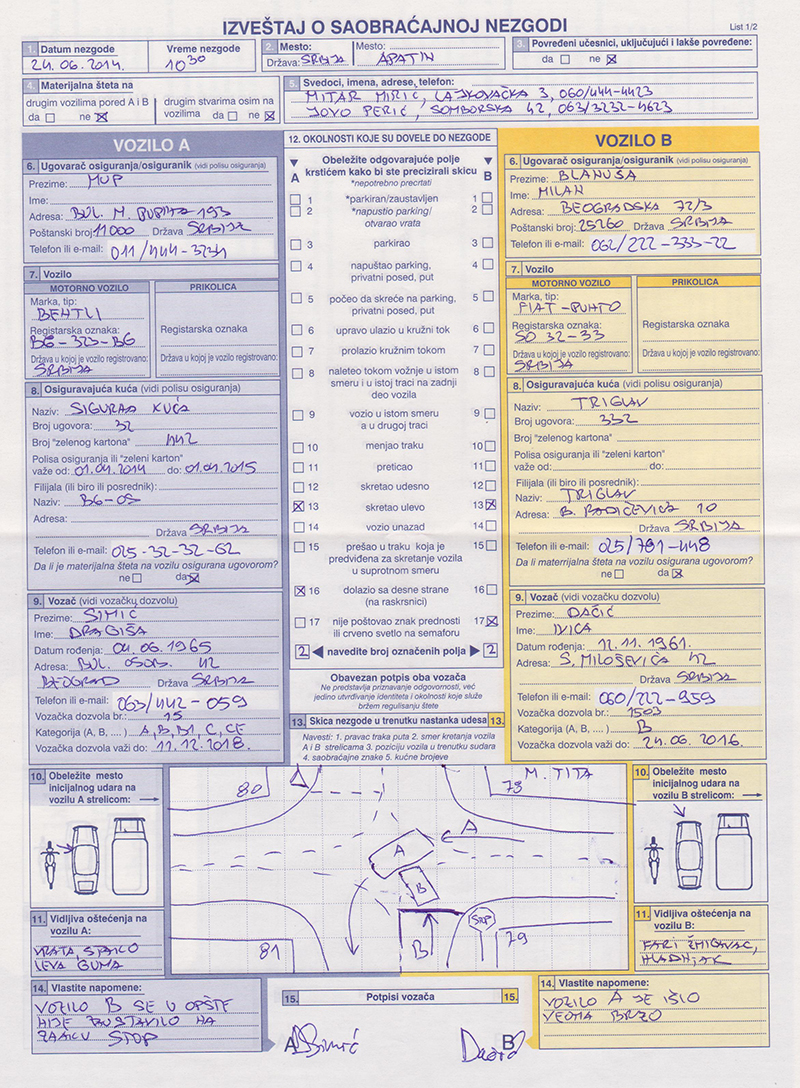 IZVEŠTAJ O SAOBRAĆAJNOJ NEZGODI
List 1/2
1. Datum nezgode
24.06.2014.
Vreme nezgode
10 30
2. Mesto:
Država: SRBIJA
Mesto:
APATIN
3. Povređeni učesnici, uključujući i lakše povređene:
da ne
4. Materijalna šteta na
drugim vozilima pored A i B
da ne
drugim stvarima osim na vozilima
da ne
5. Svedoci, imena, adrese, telefon:
MITAR MIRIĆ, LAJKOVAČKA 3, 060/444-4423
JOVO PERIĆ, SOMBORSKA 42, 063/3232-4623
VOZILO A
6. Ugovarač osiguranja/osiguranik (vidi polisu osiguranja)
Prezime: MUP
Ime:
Adresa: BUL. M. PUPINA 193
Poštanski broj 11000 Država SRBIJA
Telefon ili e-mail: 011/444-3234
7. Vozilo
MOTORNO VOZILO
PRIKOLICA
Marka, tip:
BENTLI
Registarska oznaka:
BG-323-BG
Registarska oznaka
Država u kojoj je vozilo registrovano:
SRBIJA
Država u kojoj je vozilo registrovano:
8. Osiguravajuća kuća (vidi polisu osiguranja)
Naziv: SIGURNA KUĆA
Broj ugovora: 32
Broj "zelenog kartona" 442
Polisa osiguranja ili "zeleni karton"
važe od: 01.04.2014 do: 01.04.2015
Filijala (ili biro ili posrednik):
Naziv: BG-05
Adresa:
Država SRBIJA
Telefon ili e-mail: 025-32-32-62
Da li je materijalna šteta na vozilu osigurana ugovorom?
ne da
9. Vozač (vidi vozačku dozvolu)
Prezime: SIMIĆ
Ime: DRAGIŠA
Datum rođenja: 04.06.1965
Adresa: BUL. OSOB. 42
BEOGRAD Država SRBIJA
Telefon ili e-mail: 063/442-059
Vozačka dozvola br.: 15
Kategorija (A, B, .... ) A, B, B1, C, CE
Vozačka dozvola važi do: 11.12.2018.
12. OKOLNOSTI KOJE SU DOVELE DO NEZGODE
A
Obeležite odgovarajuće polje krstićem kako bi ste precizirali skicu
B
*nepotrebno precrtati
1 *parkiran/zaustavljen 1
2 *napustio parking/ 2
otvarao vrata
3 parkirao 3
4 napuštao parking, 4
privatni posed, put
5 počeo da skreće na parking, 5
privatni posed, put
6 upravo ulazio u kružni tok 6
7 prolazio kružnim tokom 7
8 naleteo tokom vožnje u istom 8
smeru i u istoj traci na zadnji
deo vozila
9 vozio u istom smeru 9
a u drugoj traci
10 menjao traku 10
11 preticao 11
12 skretao udesno 12
13 skretao ulevo 13
14 vozio unazad 14
15 prešao u traku koja je 15
predviđena za skretanje vozila
u suprotnom smeru
16 dolazio sa desne strane 16
(na raskrsnici)
17 nije poštovao znak prednosti 17
ili crveno svetlo na semaforu
2 navedite broj označenih polja 2
Obavezan potpis oba vozača
Ne predstavlja priznavanje odgovornosti, već
jedino utvrđivanje identiteta i okolnosti koje služe
bržem regulisanju štete
VOZILO B
6. Ugovarač osiguranja/osiguranik (vidi polisu osiguranja)
Prezime: BLANUŠA
Ime: MILAN
Adresa: BEOGRADSKA 72/3
Poštanski broj: 25260 Država SRBIJA
Telefon ili e-mail: 062/222-333-22
7. Vozilo
MOTORNO VOZILO
PRIKOLICA
Marka, tip:
FIAT-PUNTO
Registarska oznaka:
SO 32-33
Registarska oznaka
Država u kojoj je vozilo registrovano:
SRBIJA
Država u kojoj je vozilo registrovano:
8. Osiguravajuća kuća (vidi polisu osiguranja)
Naziv: TRIGLAV
Broj ugovora: 332
Broj "zelenog kartona"
Polisa osiguranja ili "zeleni karton"
važe od: do:
Filijala (ili biro ili posrednik):
Naziv: TRIGLAV
Adresa: B. RADIČEVIĆA 10
Država SRBIJA
Telefon ili e-mail: 025/781-448
Da li je materijalna šteta na vozilu osigurana ugovorom?
ne da
9. Vozač (vidi vozačku dozvolu)
Prezime: DAČIĆ
Ime: IVICA
Datum rođenja: 12.11.1961.
Adresa: S. MILOŠEVIĆA 42
Država SRBIJA
Telefon ili e-mail: 060/222-959
Vozačka dozvola br.: 1503
Kategorija (A, B, .... ) B
Vozačka dozvola važi do: 24.06.2016.
13. Skica nezgode u trenutku nastanka udesa 13.
Navesti: 1. pravac traka puta 2. smer kretanja vozila
A i B strelicama 3. poziciju vozila u trenutku sudara
4. saobraćajne znake 5. kućne brojeve
10. Obeležite mesto
inicijalnog udara na
vozilu A strelicom:
80
73
M. TITA
A
A
B
B
STOP
81
79
10. Obeležite mesto
inicijalnog udara na
vozilu B strelicom:
11. Vidljiva oštećenja na
vozilu A:
VRATA, STAKLO
LEVA GUMA
11. Vidljiva oštećenja na
vozilu B:
FARI ŽMIGAVAC,
HLADNJAK
14. Vlastite napomene:
VOZILO B SE U OPŠTE
NIJE ZAUSTAVILO NA
ZNAKU STOP
15. Potpisi vozača 15.
A
B
14. Vlastite napomene:
VOZILO A JE IŠLO
VEOMA BRZO